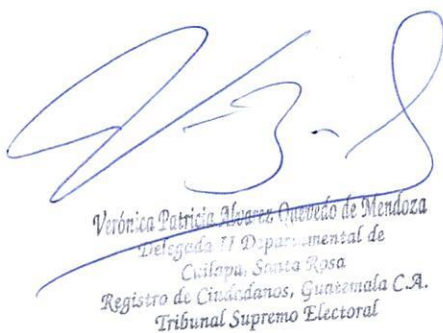 Verónica Patricia Alvarez Quevedo de Mendoza
Delegada II Departamental de
Cuilapa, Santa Rosa
Registro de Ciudadanos, Guatemala C.A.
Tribunal Supremo Electoral